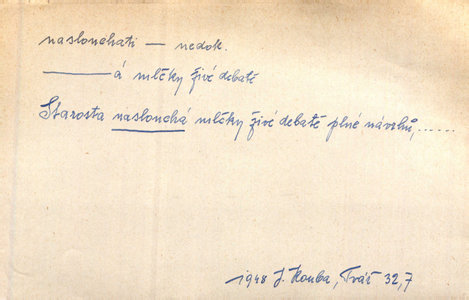 naslouchati — nedok.
———á mlčky živé debatě
Starosta naslouchá mlčky živé debatě plné návrhů,......
1948 J. Kouba, Tvář 32,7